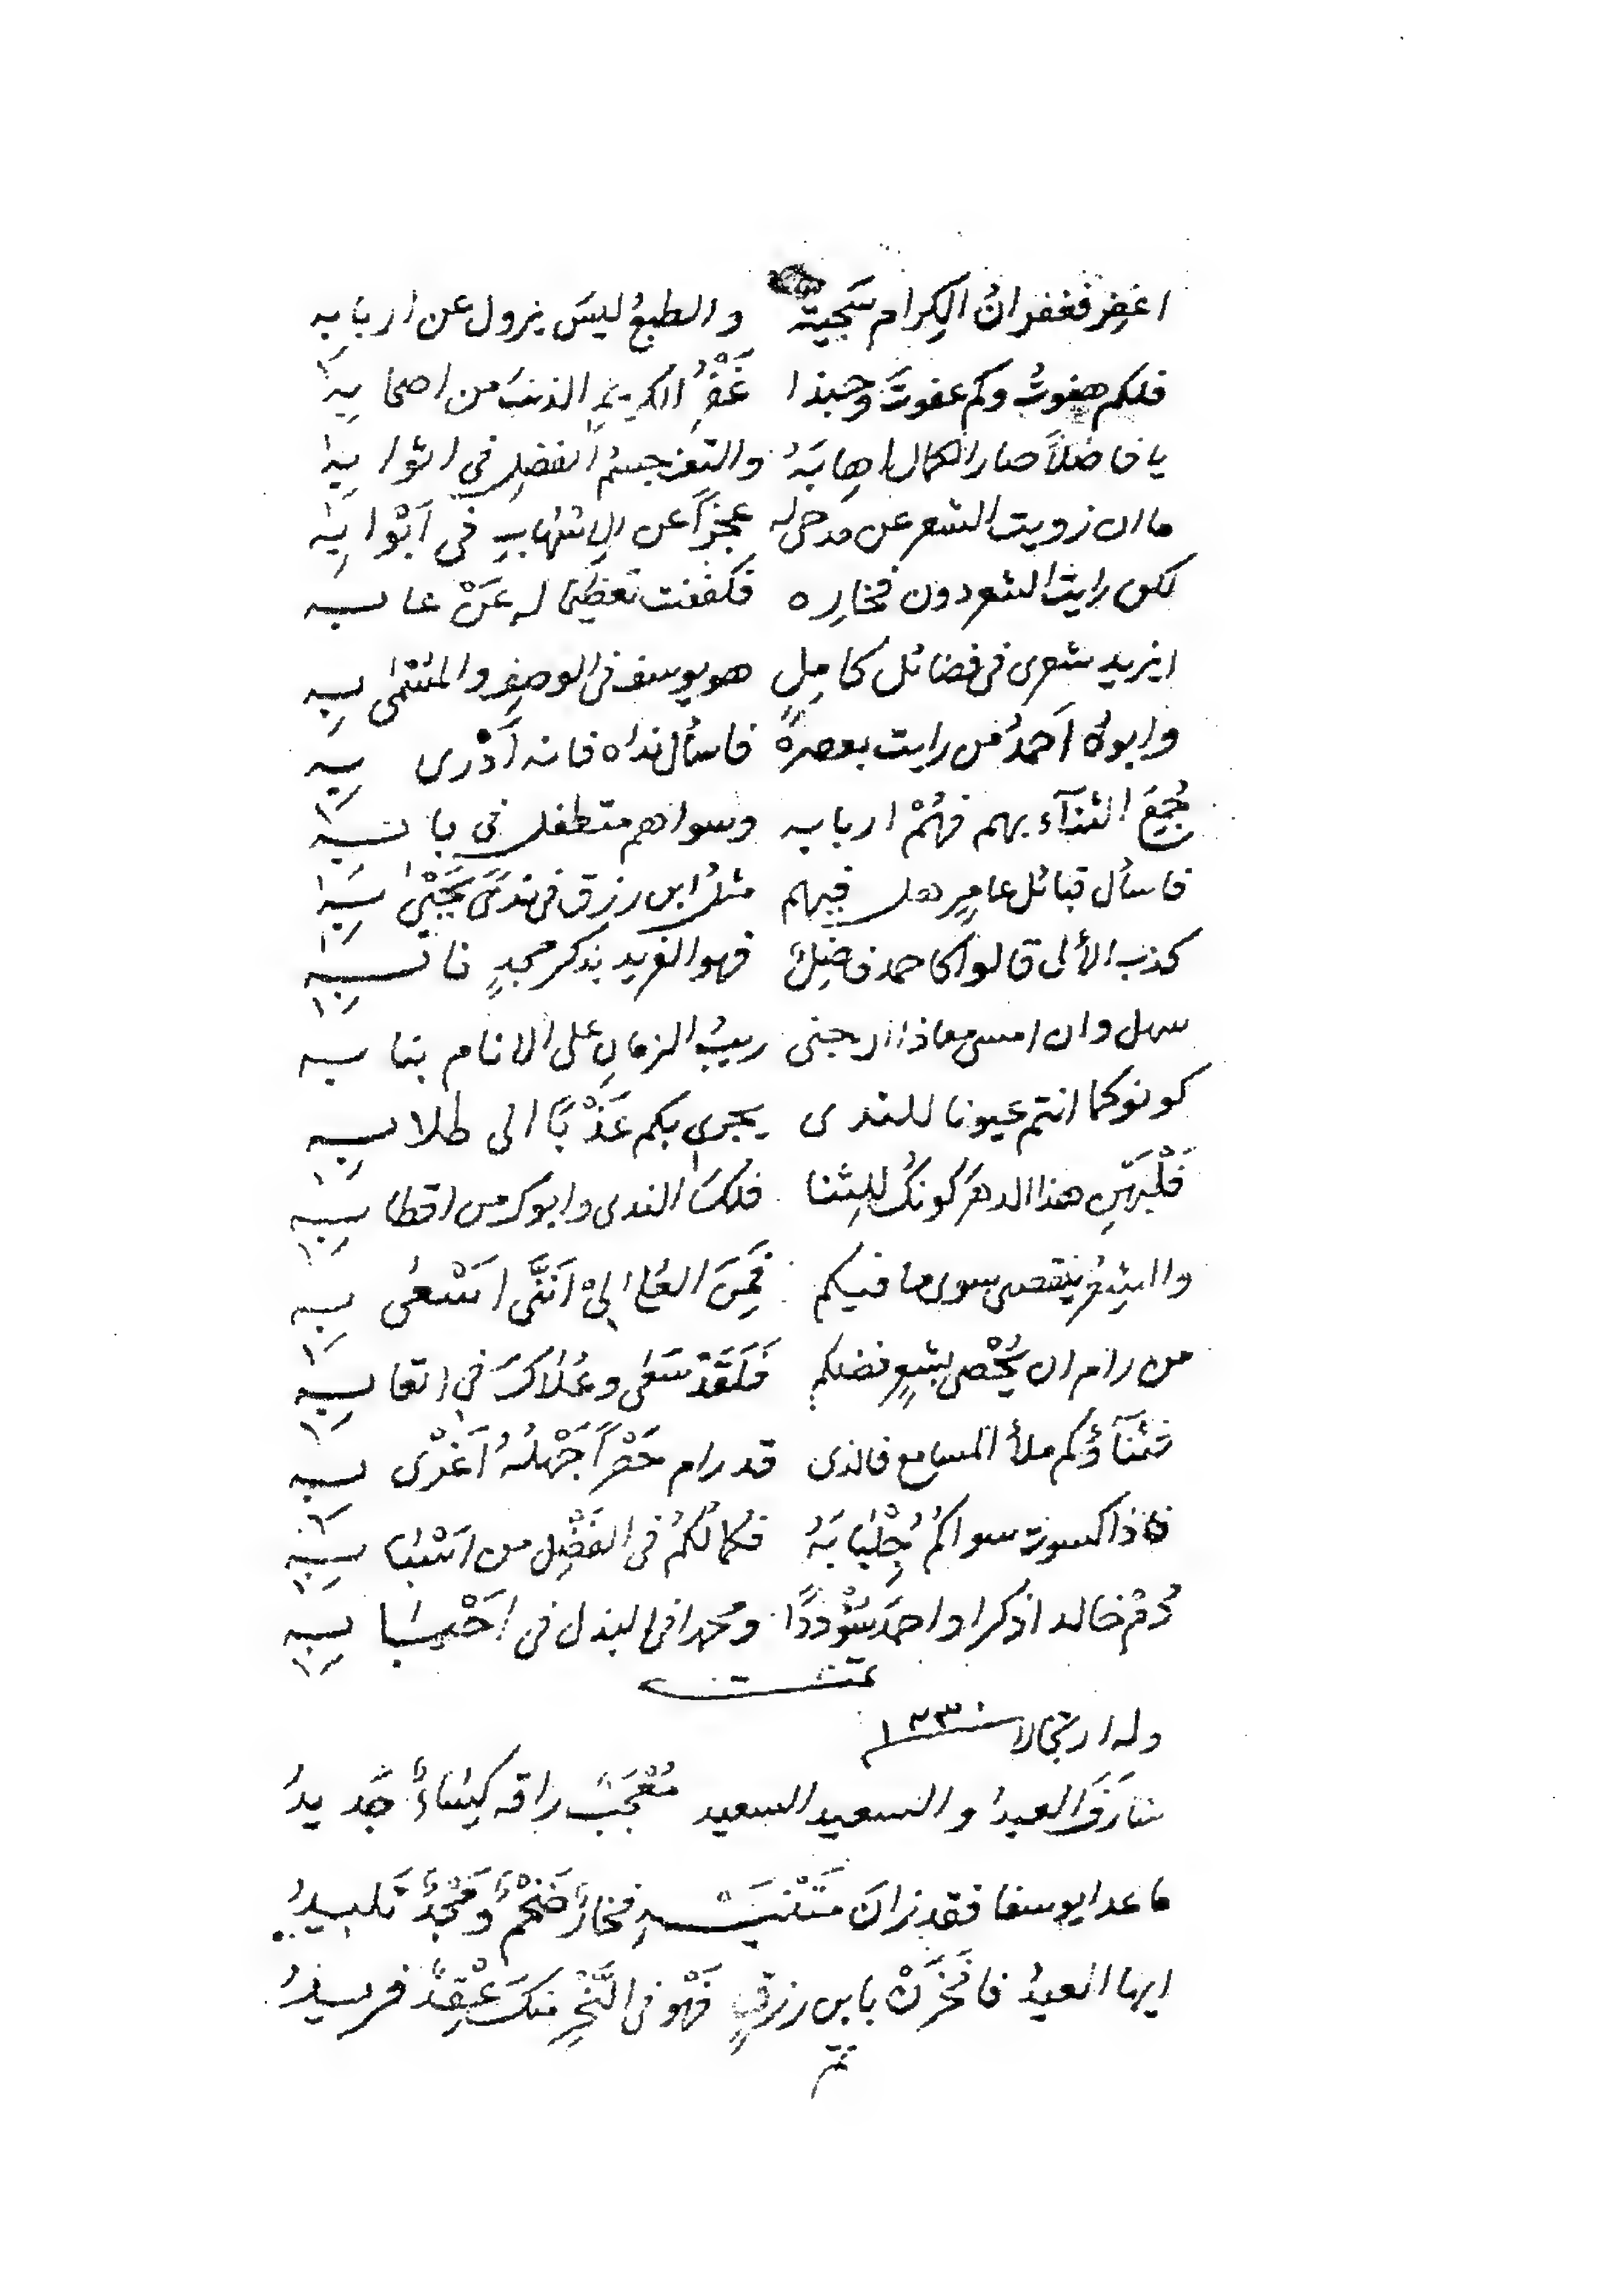 اغفِر فغفرانُ الكِرام سَجيّة والطبعُ ليسَ يزول عن اربابه
فلكم هفوتُ وكم عفوتَ وحبذا غَفْرُ الكريمِ الذنبَ من اصحابِهِ
يا فاضلاً صار الكمال اهابَهُ والتف جسمُ الفضلِ في اثوابِهِ
ما ان زويت الشعر عن مدحي له عجزاً عن الاسهابِ في اَبْوابِهِ
لكن رايت الشعر دون فخارِه فكففت تعظيما له عَنْ عابه
ايزيد شعرى فى فضائل كامِلٍ هو يوسف فى الوصفِ والمنتمى بِهِ
وابوهُ اَحمدُ من رايت بعصرهِ فاسأل نداه فانه اَدْرى بِهِ
جُمِعَ الثنآء بهم فهُمْ اربابه وسواهم متطفل فى بابه
فاسأل قبائل عامرٍ هل فيهم مثلُ ابن رزق فى ندىً يُحْبى بِهِ
كذب الألى قالوا كاحمد فاضِلٌ فهو الفريد بذكر مجدٍ نابِهِ
سهل وان امسى معاذا ارتجى ريبُ الزمانِ على الانام بنابه
كونو كما انتم عيونا للندى يجرى بكم عَذْباً الى طلابِهِ
فَلْيَهْنِ هذا الدهرَ كونكُ للثنا فلكَ الندى وابوك من اقطابِهِ
والشِعرُ ينقص سوى ما فيكم فَمِنَ العُلا اِلىْ اَنَّنى اَسْعى بِهِ
من رام ان يُحْصى بشعرٍ فضلكم فَلَقَدْ سَعَى وعُلاكَ في اتعابِهِ
فثَنَآؤُكم ملأ المسامع فالذى قد رام حَصْراً جَهْلُهُ اَغْرى بِهِ
فاذا كسوت سواكُمُ جِلْبَابَهُ فكمالُكُمُ فى الفَضْلِ من اَسْبابِهِ
دُمْ خالد اذكرا واحمدَ سُؤْددًا ومحمدا فى البذل فى اَحْسابِهِ
تمت
وله ارتجالا سنة ١٢٣٠
شارَفَ العيدُ والسعيد السعيد مُعْجَبٌ راقه كِسَاءٌ جَديدُ
ما عدا يوسفا فقد زانَ مَتْنَيْهِ فخارٌ ضَخْمٌ وَمَجْدٌ تَليدُ
ايها العيدُ فافْخَرَنْ بابن رزقٍ فَهْو فى النَّحْرِ منكَ عِقْدٌ فريدُ
تم